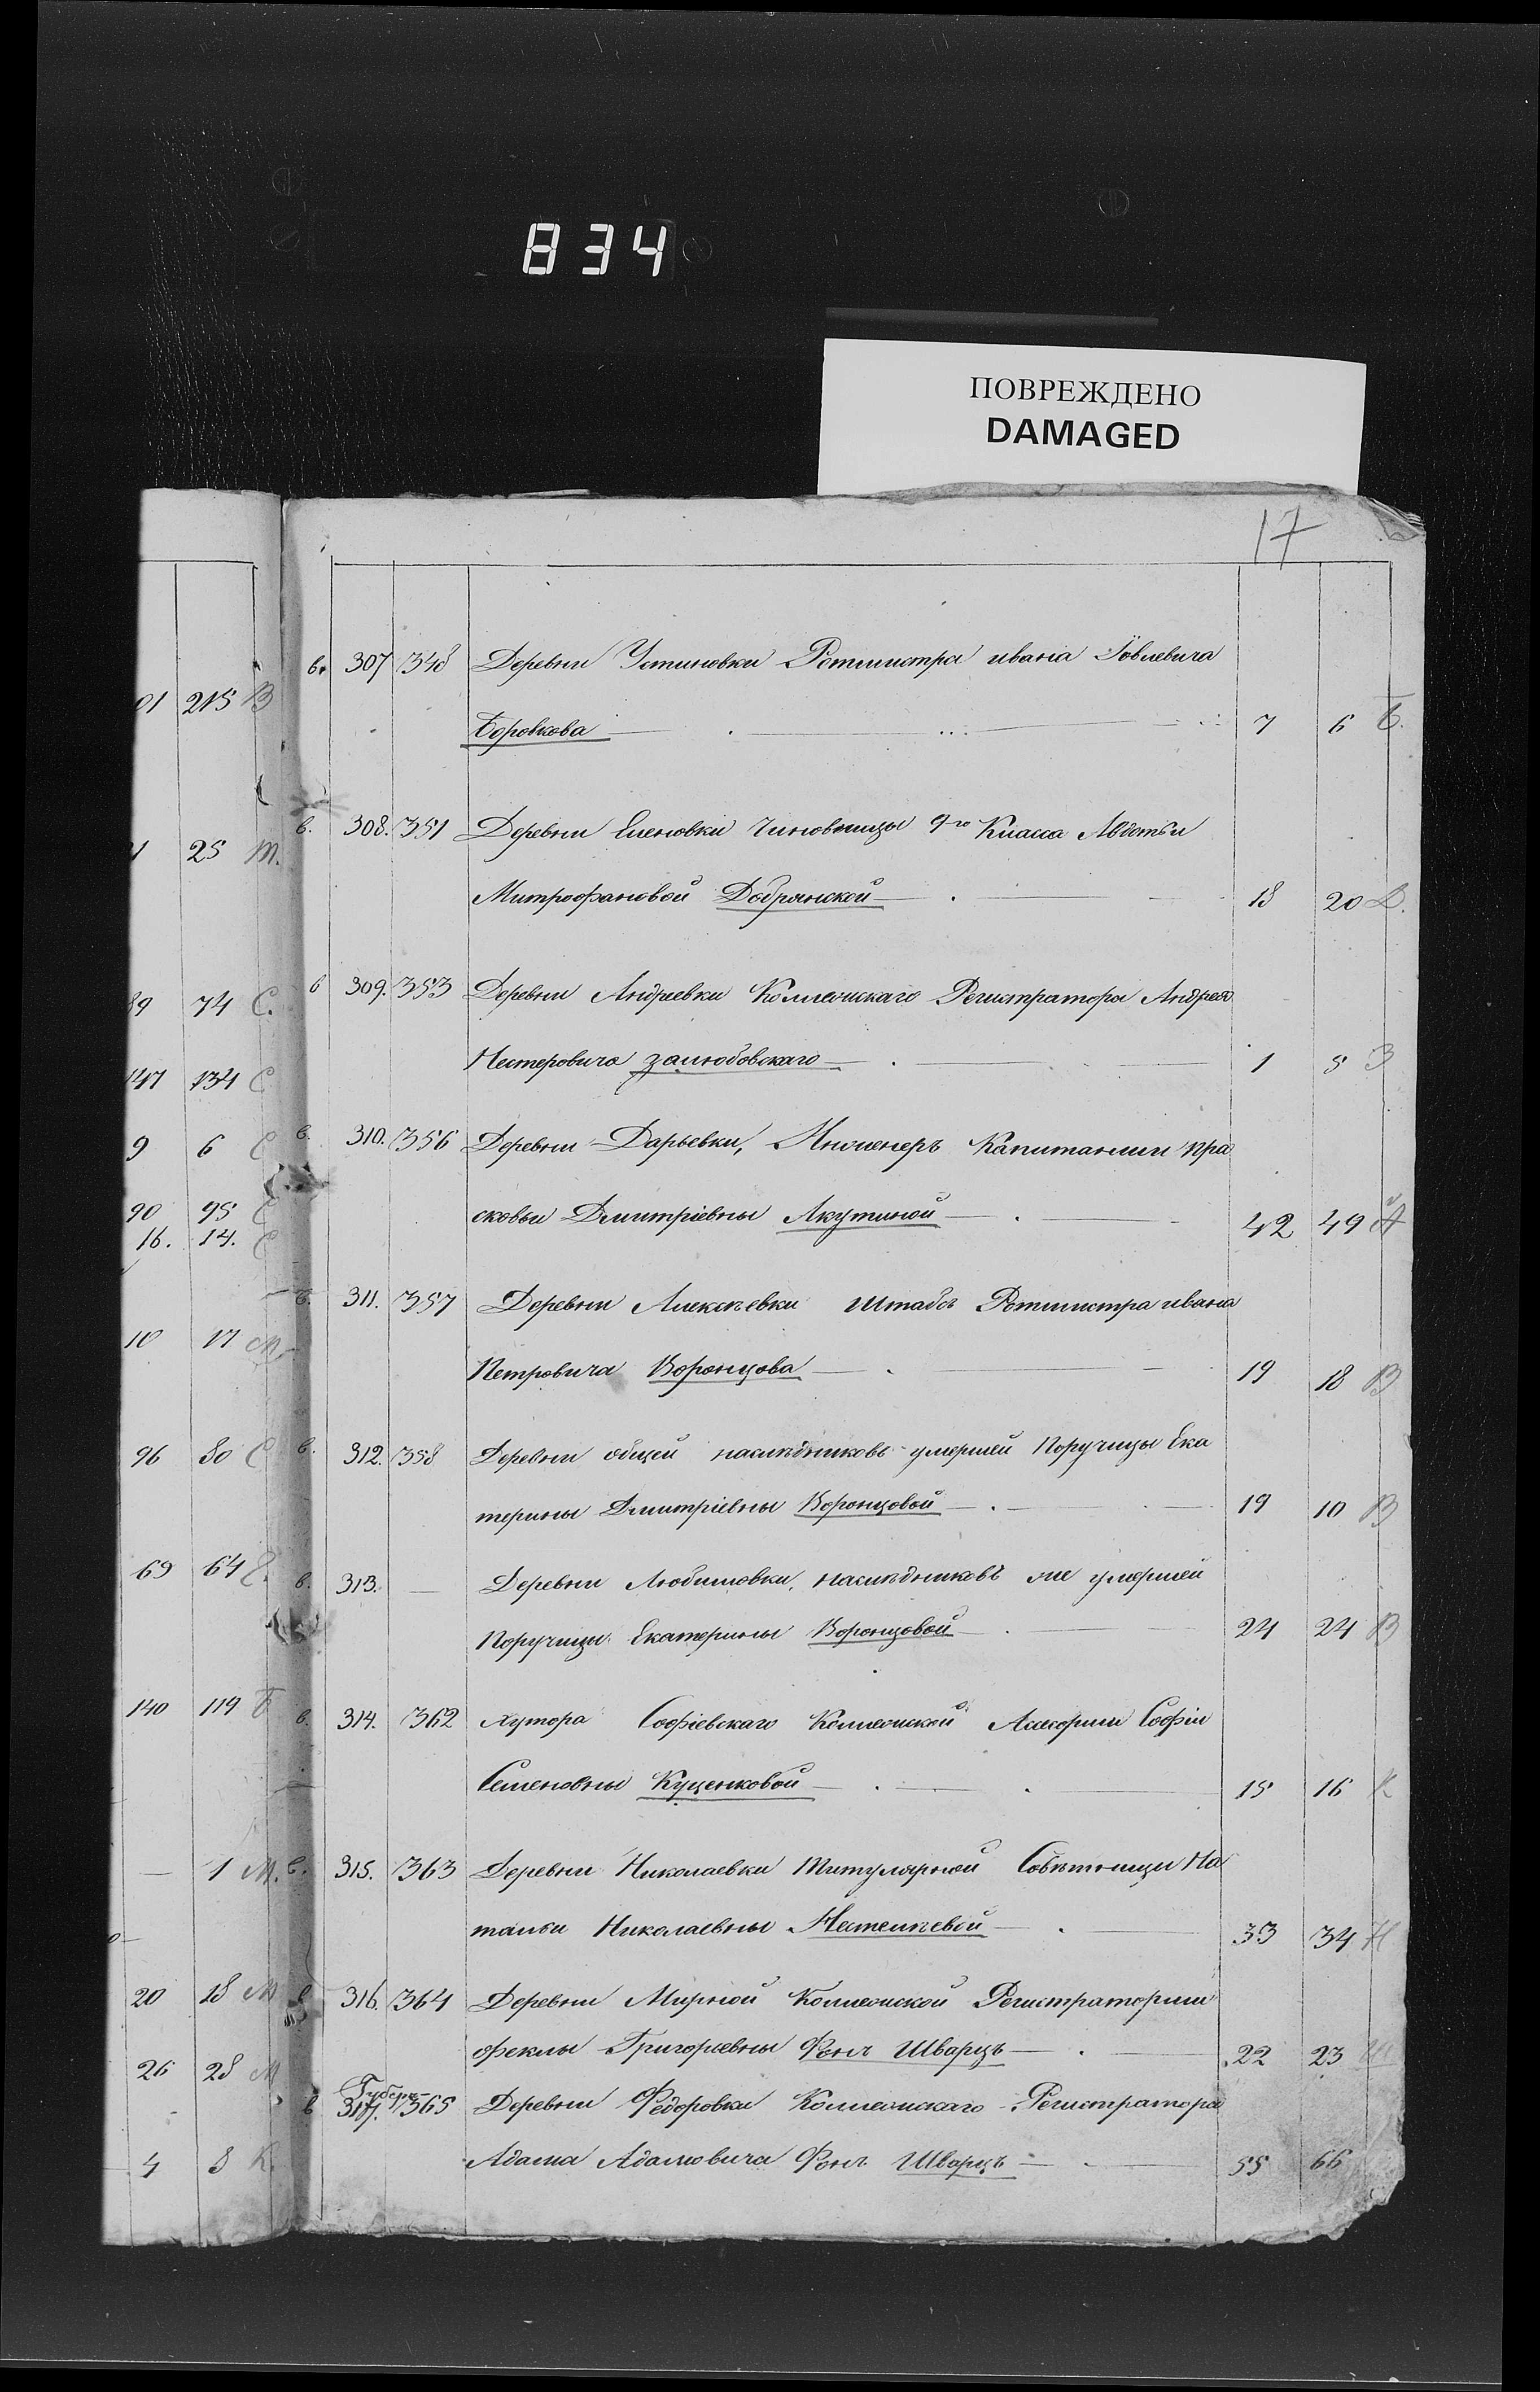 834
ПОВРЕЖДЕНО
DAMAGED
17
01 215 В
25 т.
89 74 С.
147 134 С
9 6 С
90 95 С
16. 14. С
10 17 м.
96 80 С
69 64 С.
140 119 Б
— 1 М.
20 18 М
26 28 М
4 8 К.
в. 307 348 Деревни Устиновки Ротмистра ивана Іовлевича
Боровкова 7 6 Б.
в. 308. 351 Деревни Еленовки Чиновницы 9го Класса Авдотьи
Митрофановой Добрянской 18 20 Д.
в 309. 353 Деревни Андреевки Коллежскаго Регистратора Андрея
Нестеровича залюбовскаго 1 5 З
в. 310. 356 Деревни Дарьевки, Инженеръ Капитанши пра
сковьи Дмитріевны Акутиной 42 49 А
в. 311. 357 Деревни Алексѣевки Штабъ Ротмистра ивана
Петровича Воронцова 19 18 В
в. 312. 358 Деревни общей наслѣдниковъ умершей Поручицы Ека
терины Дмитріевны Воронцовой 19 10 В
в. 313. — Деревни Любимовки, наслѣдниковъ же умершей
Поручицы Екатерины Воронцовой 24 24 В
в. 314. 362 хутора Софіевскаго Коллежской Ассесорши Софіи
Семеновны Куценковой 15 16 К
в. 315. 363 Деревни Николаевки Титулярной Совѣтницы На
тальи Николаевны Нестелѣевой 33 34 Н
в 316. 364 Деревни Мирной Коллежской Регистраторши
феклы Григорьевны Фонъ Шварцъ 22 23 Ш
Губерн
в 317. 365 Деревни Федоровки Коллежскаго Регистратора
Адама Адамовича Фонъ Шварцъ 55 66